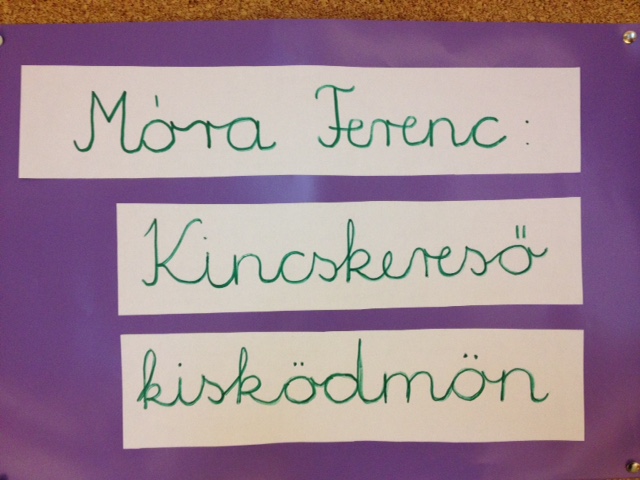 Móra Ferenc:
Kincskereső
kisködmön